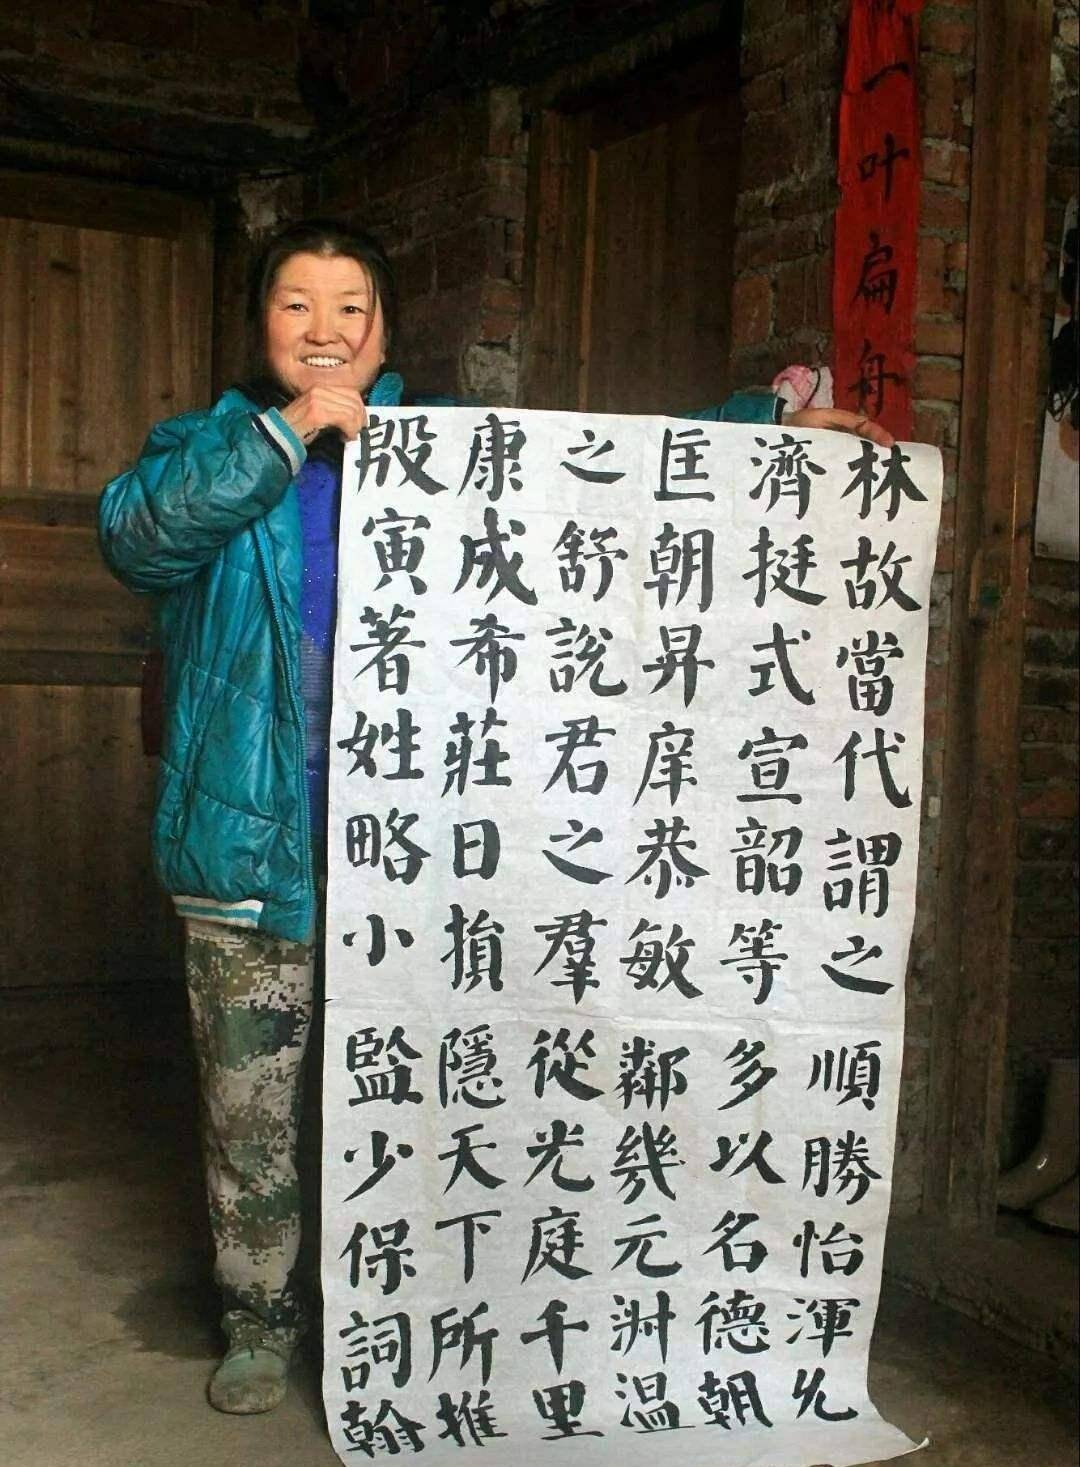 一叶扁舟
林故當代謂之順勝怡渾允
濟挺式宣韶等多以名德朝
匡朝昇庠恭敏鄰幾元淵温
之舒說君之羣從光庭千里
康成希莊日損隱天下所推
殷寅著姓略小監少保詞翰